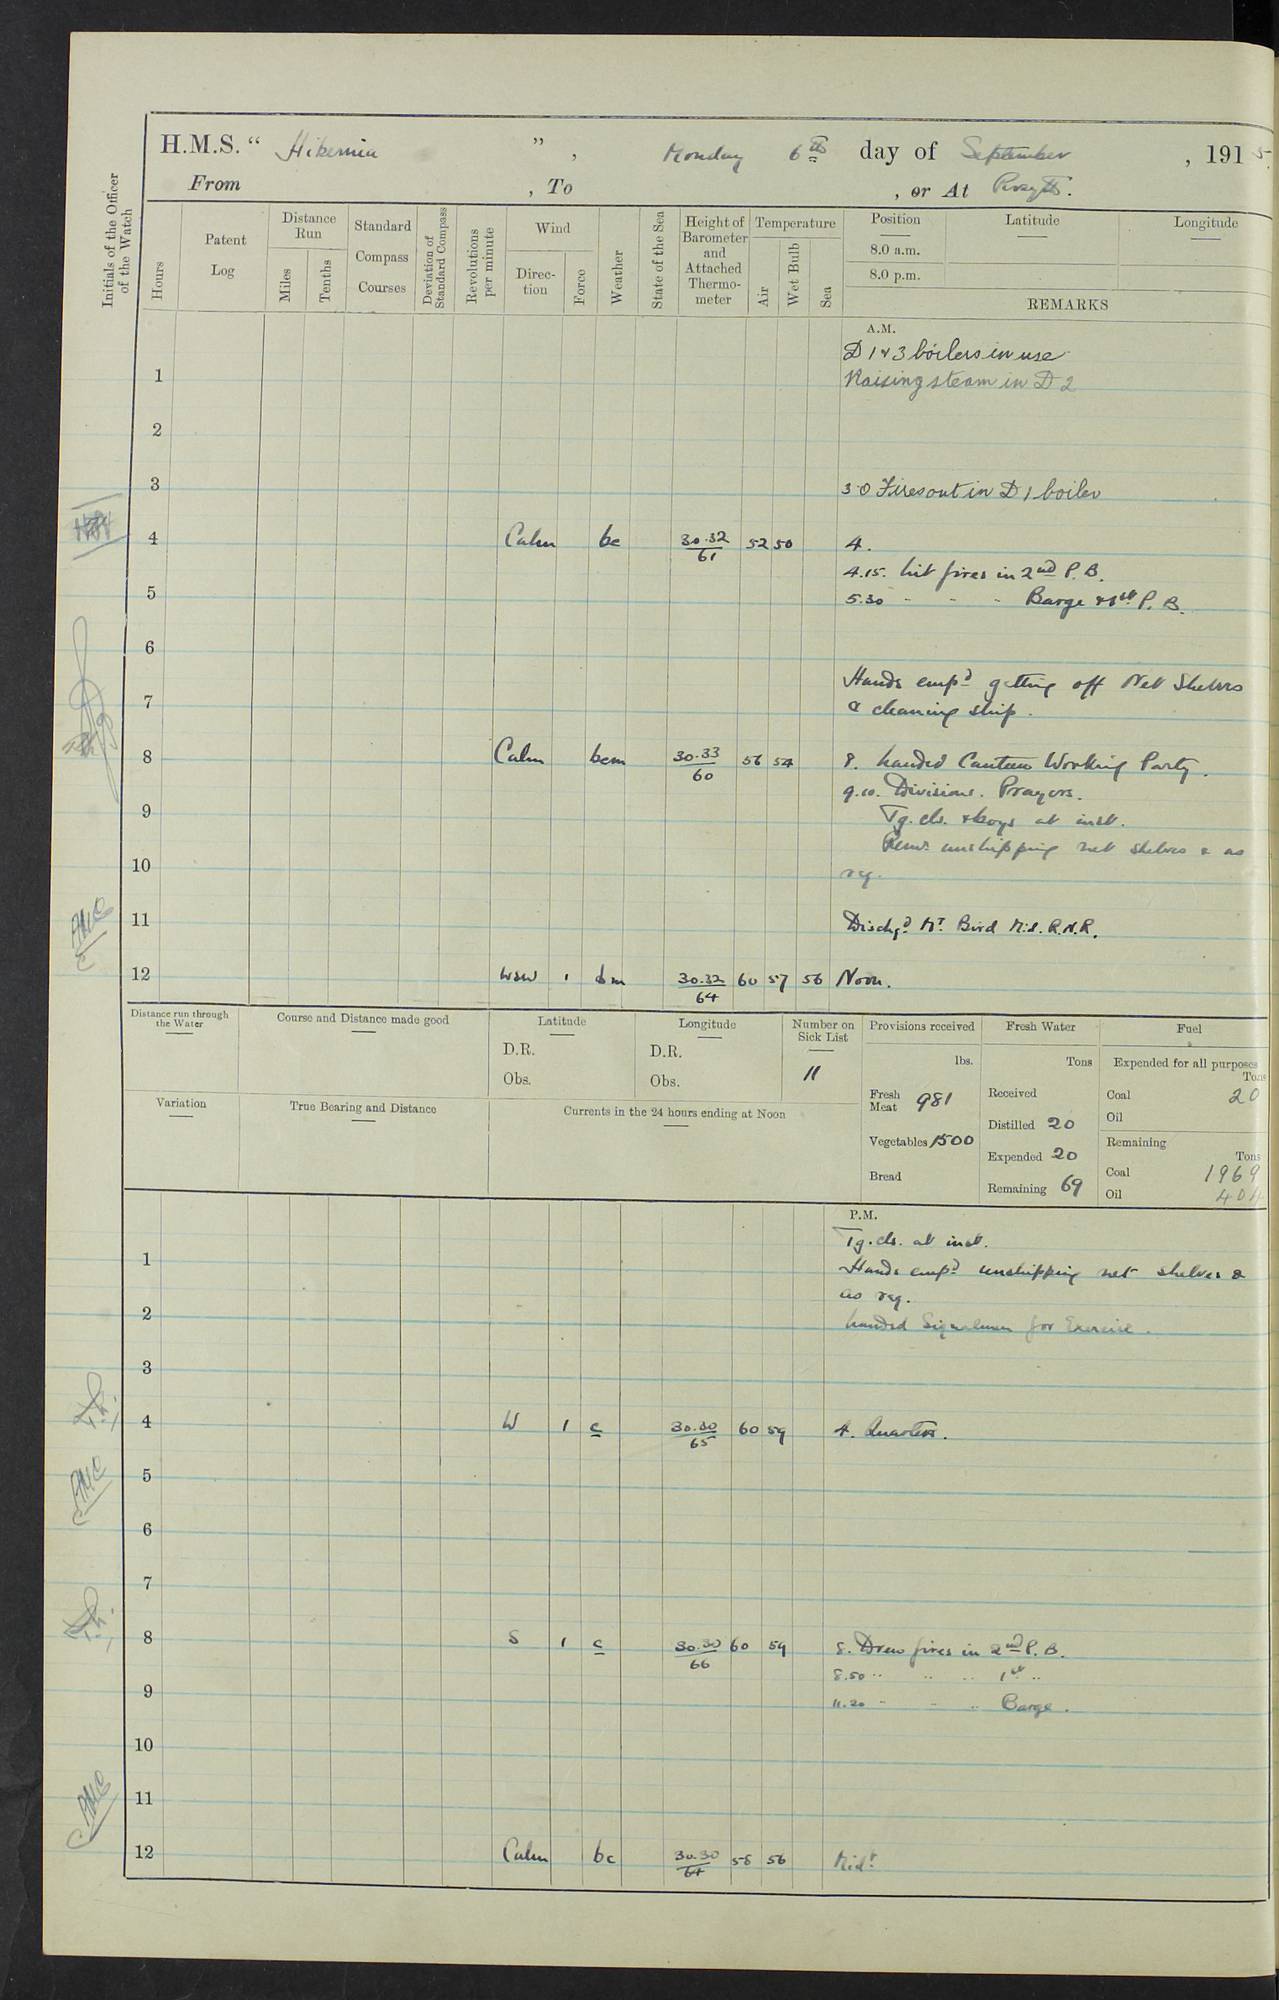 H.M.S. “ Hibernia ” , Monday 6th day of September , 1915.
From , To , or At Rosyth.
Initials of the Officer of the Watch
Hours
Patent Log
Distance Run
Miles
Tenths
Standard Compass Courses
Deviation of Standard Compass
Revolutions per minute
Wind
Direction
Force
Weather
State of the Sea
Height of Barometer and Attached Thermometer
Temperature
Air
Wet Bulb
Sea
Position
8.0 a.m.
8.0 p.m.
Latitude
Longitude
REMARKS
A.M.
D 1 & 3 boilers in use
1 Raising steam in D 2
2
3 3·0 Fires out in D 1 boiler
4 Calm bc 30.32/61 52 50 4.
4.15. Lit fires in 2nd P. B.
5 5.30 - - - Barge & 1st P. B.
6
Hands empd getting off Net Shelves
7 & cleaning ship.
8 Calm bcm 30.33/60 56 54 8. Landed Canteen Working Party.
9.10. Divisions. Prayers.
9 Tg. cls. & boys at inst.
Remr unshipping net shelves & as
10 req.
11 Dischgd Mr Bird Mid. R.N.R.
12 WSW 1 bm 30.32/64 60 57 56 Noon.
Distance run through the Water
Course and Distance made good
Latitude
D.R.
Obs.
Longitude
D.R.
Obs.
Number on Sick List
11
Provisions received
lbs.
Fresh Meat 981
Vegetables 1500
Bread
Fresh Water
Tons
Received
Distilled 20
Expended 20
Remaining 69
Fuel
Expended for all purposes
Tons
Coal 20
Oil
Remaining
Tons
Coal 1969
Oil 404
Variation
True Bearing and Distance
Currents in the 24 hours ending at Noon
P.M.
Tg. cls. at inst.
1 Hands empd unshipping net shelves &
as req.
2 Landed Signalmen for Exercise.
3
4 W 1 c 30.30/65 60 59 4. Quarters.
5
6
7
8 S 1 c 30.30/66 60 59 8. Drew fires in 2nd P. B.
8.50 .. .. .. 1st ..
9 11.20 - - .. Barge.
10
11
12 Calm bc 30.30/64 58 56 Midt